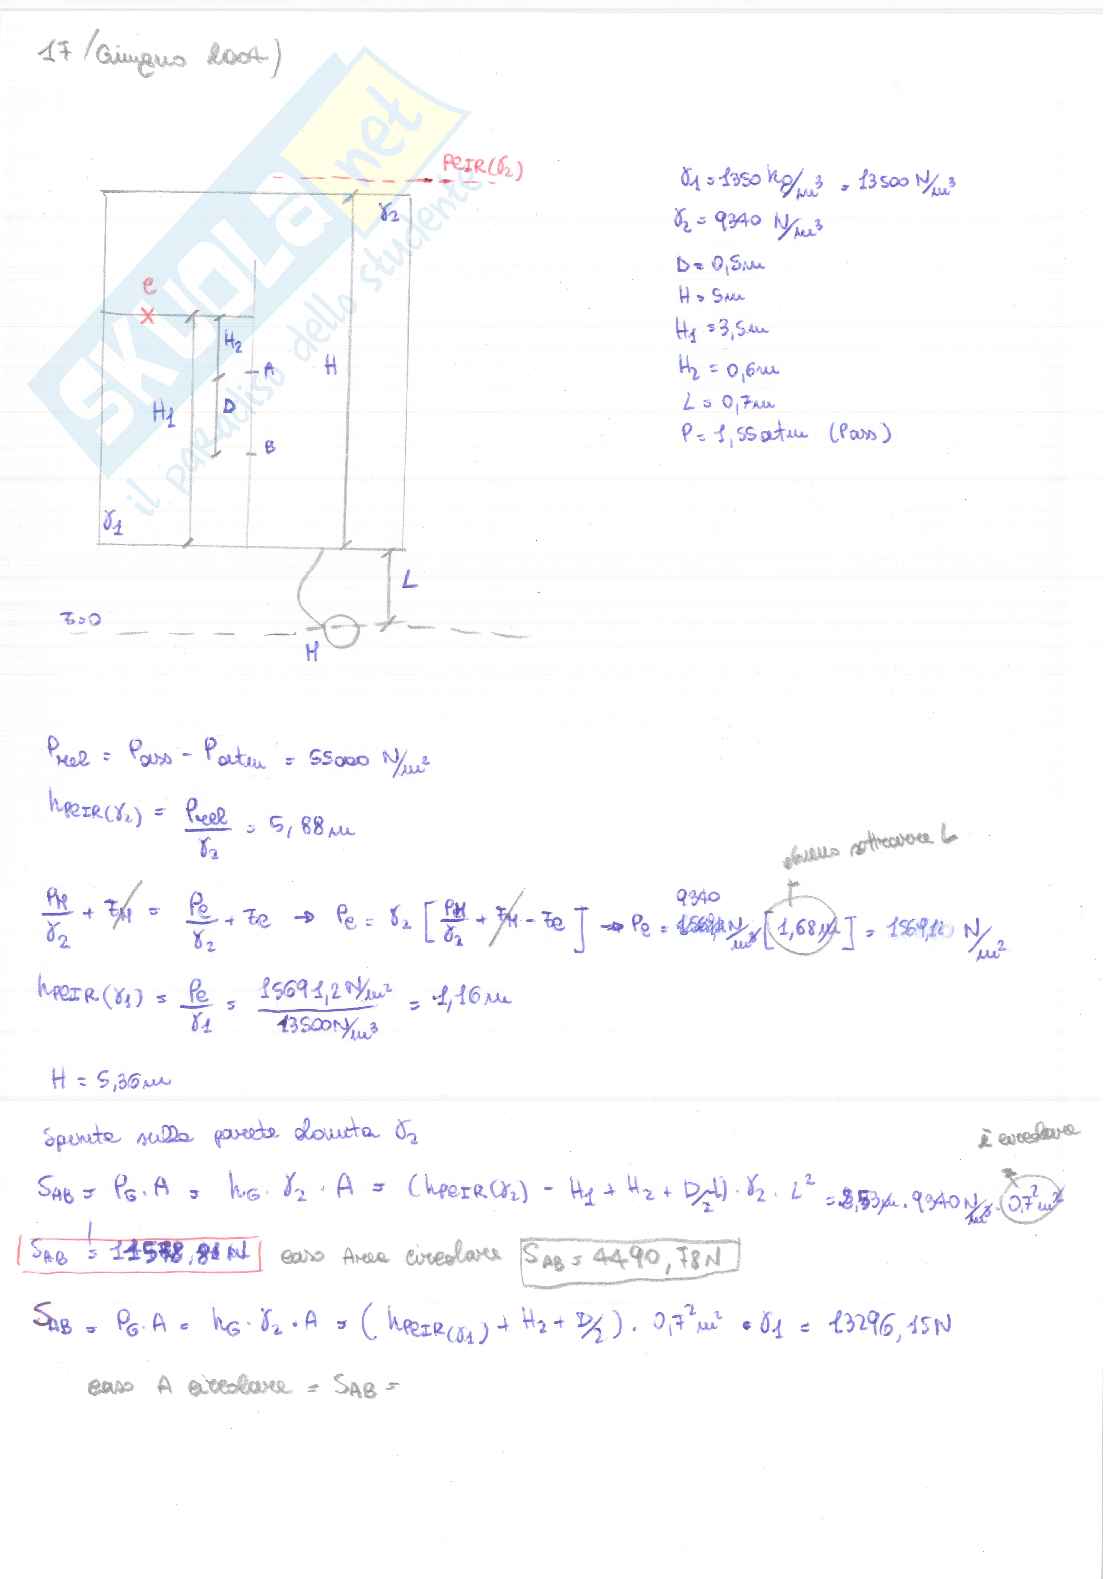 17/Giugno 2004)
SKUOLA.net
il paradiso dello studente
PCIR(γ2)
γ2
e
H2
A
H
D
H1
B
γ1
L
z=0
M
γ1 = 1350 kg/m³ = 13500 N/m³
γ2 = 9340 N/m³
D = 0,5m
H = 5m
H1 = 3,5m
H2 = 0,6m
L = 0,7m
P = 1,55 atm (Pass)
Prel = Pass - Patm = 55000 N/m²
hPCIR(γ2) = Prel/γ2 = 5,88m
sottrarre L
PM/γ2 + zM = Pe/γ2 + ze → Pe = γ2 [PM/γ2 + zM - ze] → Pe = 9340 N/m³ [1,68m] = N/m²
hPCIR(γ1) = Pe/γ1 = 15691,2 N/m² / 13500 N/m³ = 1,16m
H = 5,36m
Spinta sulla parete dovuta γ2
è circolare
SAB = PG · A = hG · γ2 · A = (hPCIR(γ2) - H1 + H2 + D/2 - L) · γ2 · L² = · 9340 N/m³ · 0,7² m²
SAB = N caso Area circolare SAB = 4490,78N
SAB = PG · A = hG · γ2 · A = (hPCIR(γ1) + H2 + D/2) · 0,7² m² · γ1 = 13296,15N
caso A circolare = SAB =